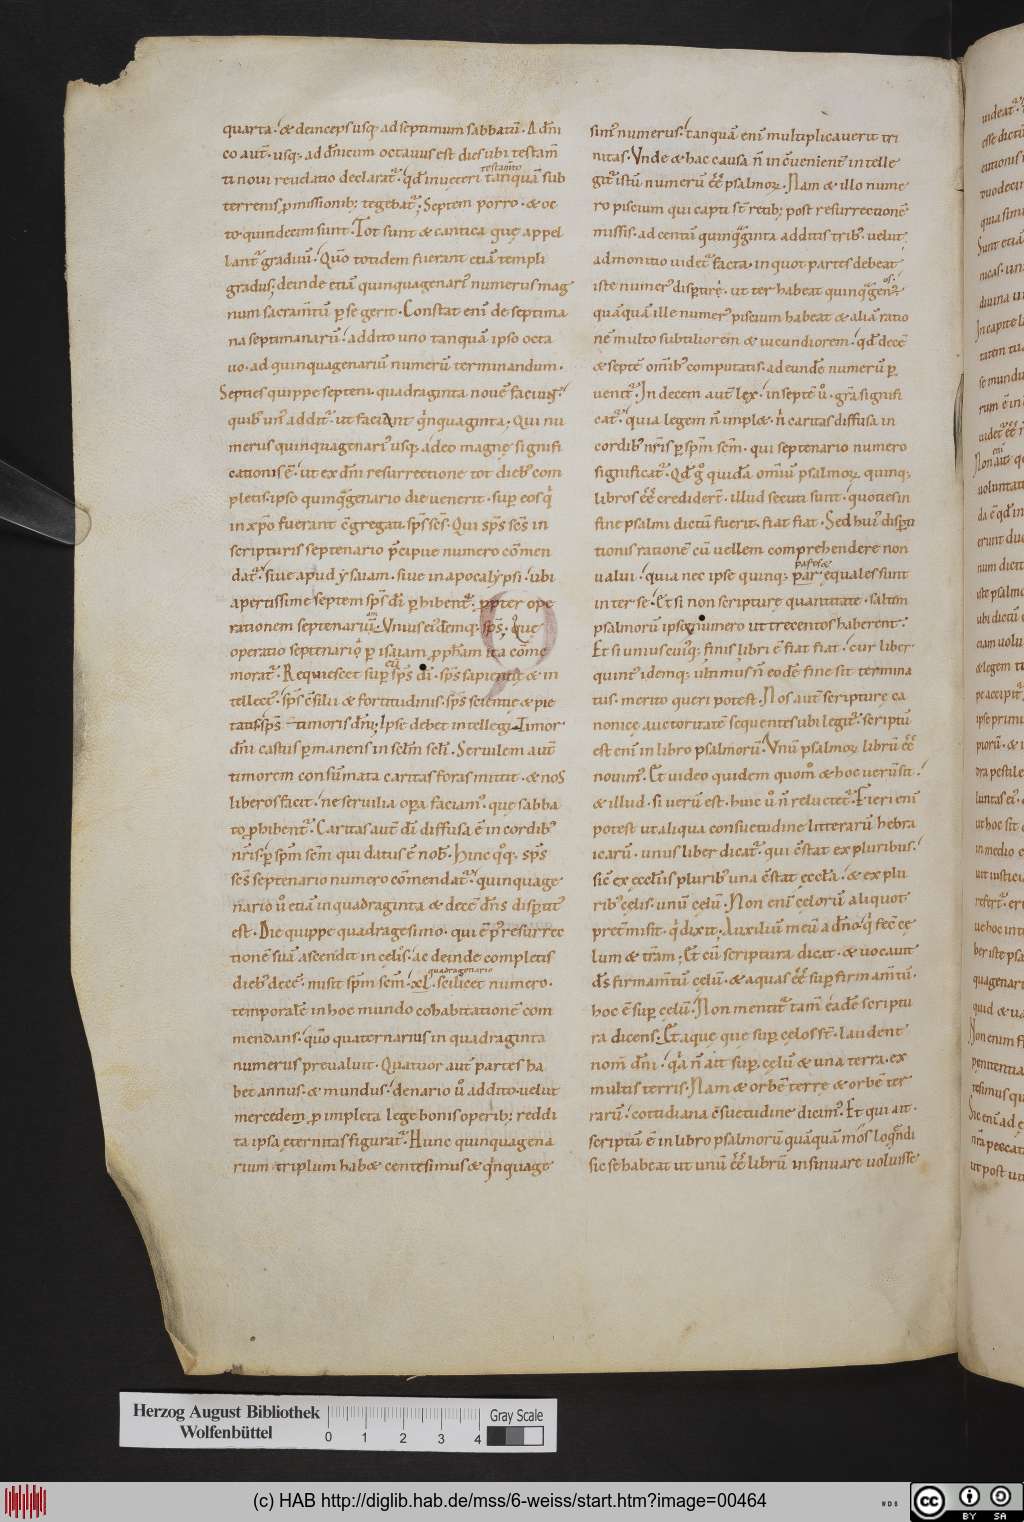 quarta. & deinceps usq; ad septimum sabbatū. A dn̄i
co aut̄. usq; ad dn̄icum octauus est dies ubi testam̄
testam̄to
ti noui reuelatio declarat͛. qd̄ in ueteri tanquā sub
terrenis ꝓmissionib; tegebat͛; Septem porro. & oc
to. quindecim sunt. Tot sunt & cantica quę appel
lant͛ graduū. Quō totidem fuerant etiā templi
gradus; deinde etiā quinquagenarī numerus mag
num sacram̄tū ꝑ se gerit. Constat enī de septima
na septimanarū. addito uno tanquā ipso octa
uo. ad quinquagenariū numerū terminandum.
Septies quippe septeni. quadraginta nouē faciunt.
quib᾽ un᾽ addit͛. ut faciant qͥnquaginta; Qui nu
merus quinquagenari᾽ usq; adeo magnę signifi
cationis ē. ut ex dn̄i resurrectione tot dieb᾽ com
pletis. ipso quinqͣgenario die uenerit. suꝑ eos qͥ
in xp̄o fuerant c̄gregati sp̄s sc̄s. Qui sp̄s sc̄s in
scripturis septenario p̄cipue numero cōmen
dat͛. siue apud ysaiam. siue in apocalypsi. ubi
apertissime septem sp̄s dī ꝑhibent͛. ꝓpter ope
rationem septenariū. Unius ei᾽demq; sp̄s; Quę
operatio septenario ꝑ isaiam ꝓph̄am ita cōme
morat͛. Requiescet suꝑ eū sp̄s dī. sp̄s sapientię & in
tellect᾽. sp̄s c̄silii & fortitudinis. sp̄s scientię & pie
tatis. sp̄s timoris dn̄i; Ipse debet intellegi. Timor
dn̄i castus ꝑmanens in sclm̄ scl̄i. Seruilem aut̄
timorem consūmata caritas foras mittit. & nos
liberos facit. ne seruilia oꝑa faciam᾽. quę sabba
to ꝓhibent͛. Caritas aut̄ dī diffusa ē in cordib᾽
nr̄is. ꝑ sp̄m sc̄m qui datus ē nob̄. Hinc qͦq; sp̄s
sc̄s septenario numero cōmendat͛. quinquage
nario u̾ etiā in quadraginta & decē dn̄s disꝑtit᾽
est. Die quippe quadragesimo. qui ē p̄᾽ resurrec
tionē suā. ascendit in cęlos. ac deinde completis
quadragenario
dieb᾽ decē. misit sp̄m sc̄m. xl. scilicet numero.
temporalē in hoc mundo cohabitationē com
mendans. quō quaternarius in quadraginta
numerus preualuit. Quatuor aut̄ partes ha
bet annus. & mundus. denario u̾ addito. uelut
mercedem ꝓ impleta lege bonis operib; reddi
ta ipsa ęternitas figurat͛. Hunc quinquagena
rium. triplum hab& centesimus & qͥnquage
sim᾽ numerus. tanquā enī multiplicauerit tri
nitas. Unde & hac causa n̄ incuenient̄ intelle
git͛ istū numerū ēē psalmoꝝ. Nam & illo nume
ro piscium qui capti st̄ retib; post resurrectionē
missis. ad centū quinqͣginta additis trib᾽. uelut
admonitio uidet͛ facta. in quot partes debeat
iste numer᾽ disꝑtiri. ut ter habeat quinqͣgenos
quāquā ille numer᾽ piscium habeat & aliā ratio
nē multo subtiliorem & iucundiorem. qd̄ decē
& septē om̄ib᾽ computatis. ad eundē numerū ꝑ
uenit͛. In decem aut̄ lex. in septē u̾. gr̄a signifi
cat͛. quia legem n̄ impl&. n̄ caritas diffusa in
cordib᾽ nr̄is ꝑ sp̄m sc̄m. qui septenario numero
significat͛. Qd̄ gͦ quidā om̄iū psalmoꝝ quinq;
libros ēē credider̄t. illud secuti sunt. quoties in
fine psalmi dictū fuerit. fiat fiat. Sed hui᾽ disꝑti
tionis rationē cū uellem comprehendere non
ualui. quia nec ipse quinq; partes ęquales sunt
inter se. Et si non scripturę quantitate. saltim
psalmorū ipso numero ut trecentos haberent.
Et si unius cuiq; finis libri ē fiat fiat. cur liber
quint᾽ idemq; ultimus n̄ eodē fine sit termina
tus. merito queri potest. Nos aut̄ scripturę ca
nonicę auctoritatē sequentes ubi legit͛. scriptū
est enī in libro psalmorū. Unū psalmoꝝ librū ēē
nouim᾽. Et uideo quidem quom̊ & hoc uerū sit.
& illud. si uerū est. huic u̾ n̄ reluctet͛. Fieri enī
potest ut aliqua consuetudine litterarū hebra
icarū. unus liber dicat͛. qui c̄stat ex pluribus.
sic̄ ex ęcclesiis plurib᾽ una c̄stat ęccla. & ex plu
rib᾽ cęlis. unū cęlū. Non enī cęlorū aliquot
pret̄misit. qͥ dixit. Auxiliū meū a dn̄o. qͥ fec̄ cę
lum & tr̄am; Et cū scriptura dicat. & uocauit
ds̄ firmam̄tū cęlū. & aquas ēē suꝑ firmam̄tū.
hoc ē suꝑ cęlū. Non mentit͛ tam̄ eadē scriptu
ra dicens. Et aque quę suꝑ cęlos st̄. laudent
nom̄ dn̄i. qͥa n̄ ait suꝑ cęlū & una terra. ex
multis terris. Nam & orbē terrę & orbē ter
rarū. cotidiana c̄suetudine dicim᾽. Et qui ait.
scriptū ē in libro psalmorū quāquā mos loqͤndi
sic se habeat ut unū ēē librū insinuare uoluisse
Herzog August Bibliothek
Wolfenbüttel
0 1 2 3 4
Gray Scale
(c) HAB http://diglib.hab.de/mss/6-weiss/start.htm?image=00464
cc
BY SA